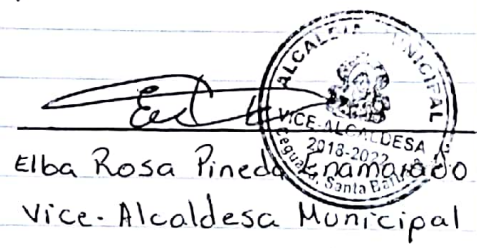 ALCALDIA MUNICIPAL
VICE-ALCALDESA
2018-2022
Ceguaca, Santa Barbara
Elba Rosa Pineda Enamorado
Vice-Alcaldesa Municipal